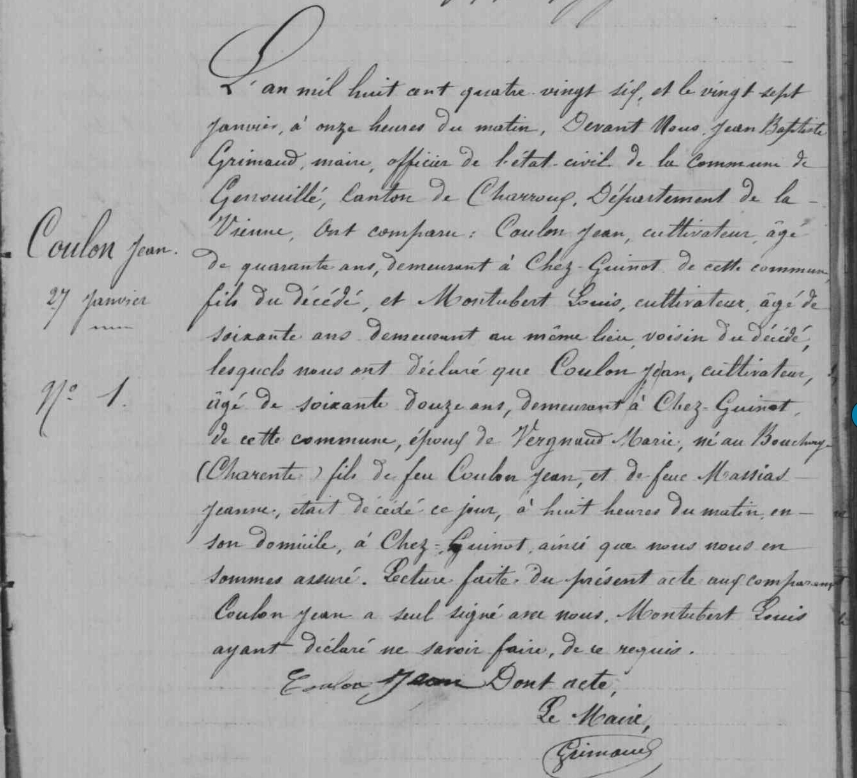 L'an mil huit cent quatre vingt six, et le vingt sept
janvier, à onze heures du matin, Devant Nous, Jean Baptiste
Grimaud, maire, officier de l'état-civil de la commune de
Genouillé, Canton de Charroux, Département de la
Vienne, Ont comparu : Coulon Jean, cultivateur, âgé
de quarante ans, demeurant à Chez-Guinot de cette commune,
fils du décédé, et Montubert Louis, cultivateur, âgé de
soixante ans demeurant au même lieu, voisin du décédé,
lesquels nous ont déclaré que Coulon Jean, cultivateur,
âgé de soixante douze ans, demeurant à Chez-Guinot,
de cette commune, époux de Vergnaud Marie, né au Bouchage
(Charente) fils de feu Coulon Jean, et de feue Massias
Jeanne, était décédé ce jour, à huit heures du matin, en
son domicile, à Chez-Guinot, ainsi que nous nous en
sommes assuré. Lecture faite du présent acte aux comparants
Coulon Jean a seul signé avec nous, Montubert Louis
ayant déclaré ne savoir faire, de ce requis.
Coulon Jean Dont acte,
Le Maire,
Grimaud
Coulon Jean.
27 Janvier
N° 1.